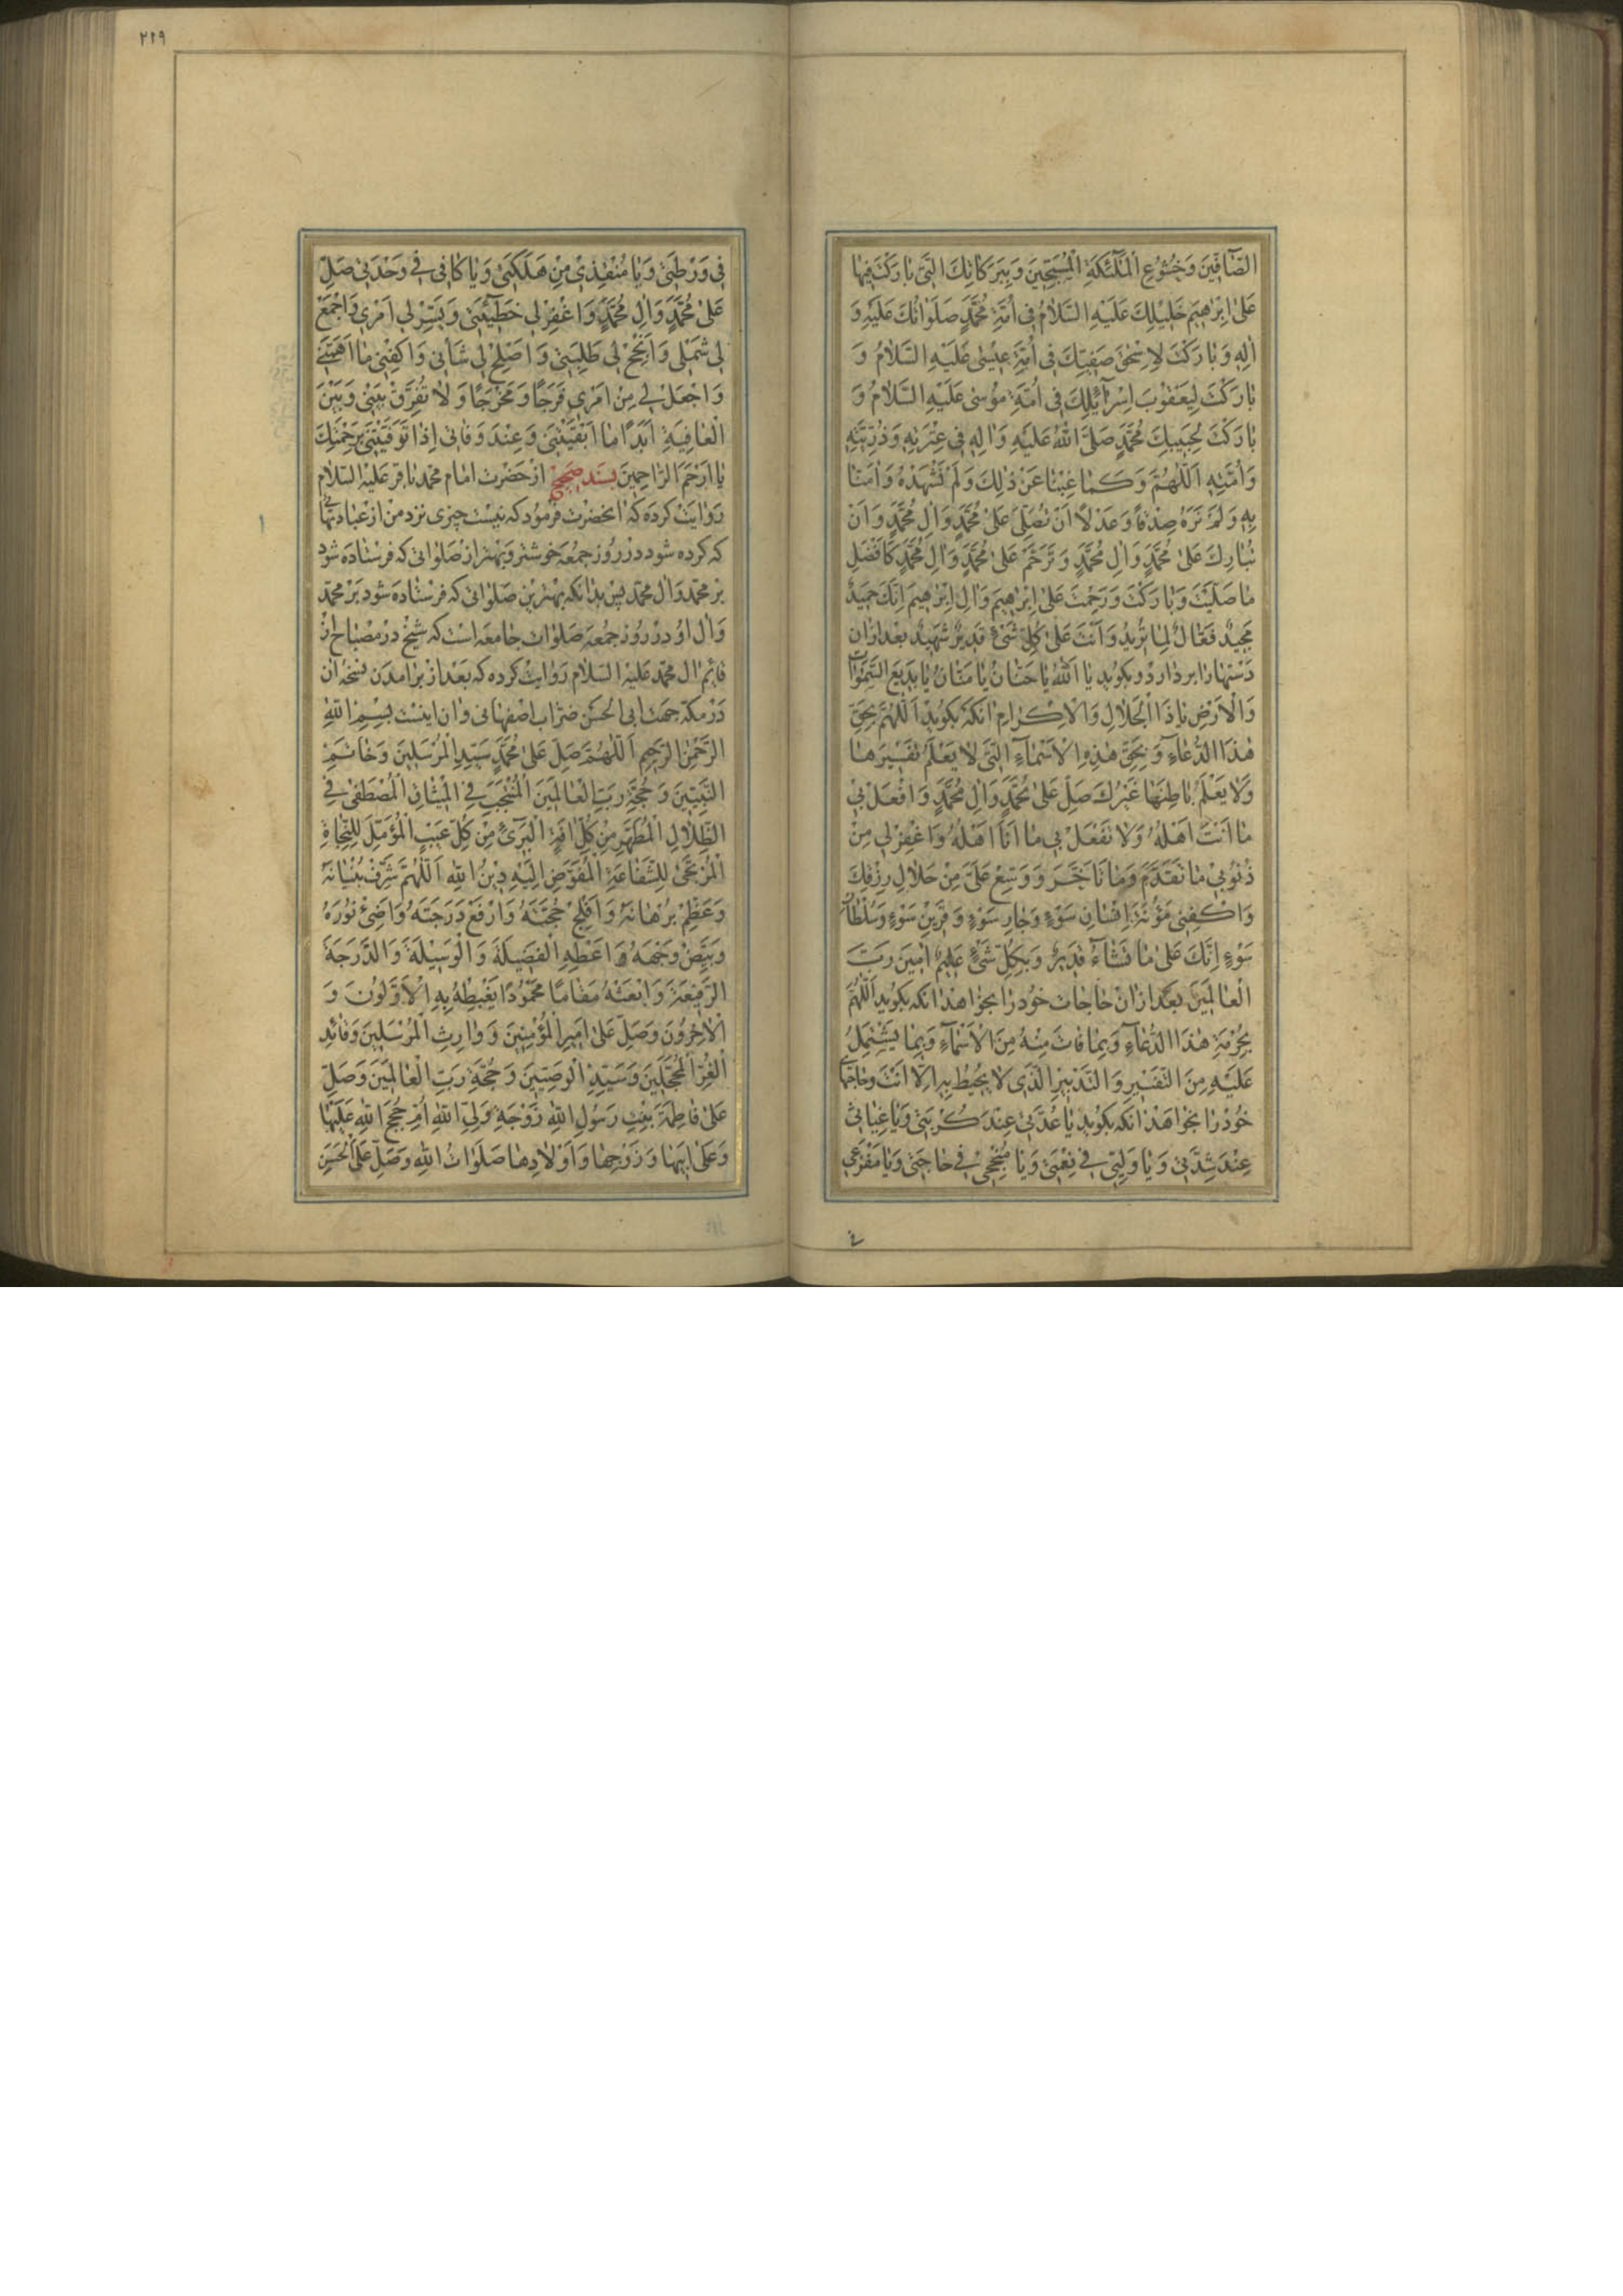 الصَّآفّينَ وَخُشُوعِ الْمَلٰٓئِكَةِ الْمُسَبِّحينَ وَبِبَرَكاتِكَ الَّتى بارَكْتَ فيها
عَلىٰ اِبْراهيمَ خَليلِكَ عَلَيْهِ السَّلامُ فى اُمَّةِ مُحَمَّدٍ صَلَواتُكَ عَلَيْهِ وَ
الِهِ وَبارَكْتَ لِاِسْحٰقَ صَفِيِّكَ فى اُمَّةِ عيسٰى عَلَيْهِ السَّلامُ وَ
بارَكْتَ لِيَعْقُوبَ اِسْرآئيلِكَ فى اُمَّةِ مُوسٰى عَلَيْهِ السَّلامُ وَ
بارَكْتَ لِحَبيبِكَ مُحَمَّدٍ صَلَّى اللّٰهُ عَلَيْهِ وَالِهِ فى عِتْرَتِهِ وَذُرِّيَّتِهِ
وَاُمَّتِهِ اَللّٰهُمَّ وَكَما غِبْنا عَنْ ذٰلِكَ وَلَمْ نَشْهَدْهُ وَامَنّا
بِهِ وَلَمْ نَرَهُ صِدْقًا وَعَدْلًا اَنْ تُصَلِّىَ عَلىٰ مُحَمَّدٍ وَالِ مُحَمَّدٍ وَاَنْ
تُبارِكَ عَلىٰ مُحَمَّدٍ وَالِ مُحَمَّدٍ وَتَرَحَّمَ عَلىٰ مُحَمَّدٍ وَالِ مُحَمَّدٍ كَاَفْضَلِ
ما صَلَّيْتَ وَبارَكْتَ وَرَحِمْتَ عَلىٰ اِبْراهيمَ وَالِ اِبْراهيمَ اِنَّكَ حَميدٌ
مَجيدٌ فَعّالٌ لِما تُريدُ وَاَنْتَ عَلىٰ كُلِّ شَىْءٍ قَديرٌ شَهيدٌ بعد ازان
دستها را بردارد و بكويد يا اَللّٰهُ يا حَنّانُ يا مَنّانُ يا بَديعَ السَّمٰواتِ
وَالْاَرْضِ يا ذَا الْجَلالِ وَالْاِكْرامِ انكه بكويد اَللّٰهُمَّ بِحَقِّ
هٰذَا الدُّعآءِ وَبِحَقِّ هٰذِهِ الْاَسْمآءِ الَّتى لا يَعْلَمُ تَفْسيرَها
وَلا يَعْلَمُ باطِنَها غَيْرُكَ صَلِّ عَلىٰ مُحَمَّدٍ وَالِ مُحَمَّدٍ وَافْعَلْ بى
ما اَنْتَ اَهْلُهُ وَلا تَفْعَلْ بى ما اَنَا اَهْلُهُ وَاغْفِرْ لى مِنْ
ذُنُوبى ما تَقَدَّمَ وَما تَاَخَّرَ وَوَسِّعْ عَلَىَّ مِنْ حَلالِ رِزْقِكَ
وَاكْفِنى مَؤُنَةَ اِنْسانِ سَوْءٍ وَجارِ سَوْءٍ وَقَرينِ سَوْءٍ وَسُلْطانِ
سَوْءٍ اِنَّكَ عَلىٰ ما تَشآءُ قَديرٌ وَبِكُلِّ شَىْءٍ عَليمٌ امينَ رَبَّ
الْعالَمينَ بعد ازان حاجات خود را بخواهد انكه بكويد اَللّٰهُمَّ
بِحُرْمَةِ هٰذَا الدُّعآءِ وَبِما فاتَ مِنْهُ مِنَ الْاَسْمآءِ وَبِما يَشْتَمِلُ
عَلَيْهِ مِنَ التَّفْسيرِ وَالتَّدْبيرِ الَّذى لا يُحيطُ بِهِ اِلّا اَنْتَ وحاجتهاى
خود را بخواهد انكه بكويد يا عُدَّتى عِنْدَ كُرْبَتى وَيا غِياثى
عِنْدَ شِدَّتى وَيا وَلِيّى فى نِعْمَتى وَيا مُنْجِحى فى حاجَتى وَيا مَفْزَعى
٢١٩
فى وَرْطَتى وَيا مُنْقِذى مِنْ هَلَكَتى وَيا كالِئى فى وَحْدَتى صَلِّ
عَلىٰ مُحَمَّدٍ وَالِ مُحَمَّدٍ وَاغْفِرْ لى خَطيٓئَتى وَيَسِّرْ لى اَمْرى وَاجْمَعْ
لى شَمْلى وَاَنْجِحْ لى طَلِبَتى وَاَصْلِحْ لى شَاْنى وَاكْفِنى ما اَهَمَّنى
وَاجْعَلْ لى مِنْ اَمْرى فَرَجًا وَمَخْرَجًا وَلا تُفَرِّقْ بَيْنى وَبَيْنَ
الْعافِيَةِ اَبَدًا ما اَبْقَيْتَنى وَعِنْدَ وَفاتى اِذا تَوَفَّيْتَنى بِرَحْمَتِكَ
يا اَرْحَمَ الرّاحِمينَ بسند صحيح از حضرت امام محمد باقر عليه السلام
روايت كرده كه انحضرت فرمود كه نيست چيزى نزد من از عبادتهائى
كه كرده شود در روز جمعه خوشتر و بهتر از صلواتى كه فرستاده شود
بر محمد وال محمد پس بدانكه بهترين صلواتى كه فرستاده شود بر محمد
وال او در روز جمعه صلوات جامعه است كه شيخ در مصباح از
قائم ال محمد عليه السلام روايت كرده كه بعد از برامدن نسخه ان
در مكه جهت ابى الحسن ضراب اصفهانى و ان اينست بِسْمِ اللّٰهِ
الرَّحْمٰنِ الرَّحيمِ اَللّٰهُمَّ صَلِّ عَلىٰ مُحَمَّدٍ سَيِّدِ الْمُرْسَلينَ وَخاتَمِ
النَّبِيّينَ وَحُجَّةِ رَبِّ الْعالَمينَ الْمُنْتَجَبِ فِى الْميثاقِ الْمُصْطَفىٰ فِى
الظِّلالِ الْمُطَهَّرِ مِنْ كُلِّ افَةٍ الْبَرىءِ مِنْ كُلِّ عَيْبٍ الْمُؤَمَّلِ لِلنَّجاةِ
الْمُرْتَجىٰ لِلشَّفاعَةِ الْمُفَوَّضِ اِلَيْهِ دينُ اللّٰهِ اَللّٰهُمَّ شَرِّفْ بُنْيانَهُ
وَعَظِّمْ بُرْهانَهُ وَاَفْلِجْ حُجَّتَهُ وَارْفَعْ دَرَجَتَهُ وَاَضِئْ نُورَهُ
وَبَيِّضْ وَجْهَهُ وَاَعْطِهِ الْفَضيلَةَ وَالْوَسيلَةَ وَالدَّرَجَةَ
الرَّفيعَةَ وَابْعَثْهُ مَقامًا مَحْمُودًا يَغْبِطُهُ بِهِ الْاَوَّلُونَ وَ
الْاخِرُونَ وَصَلِّ عَلىٰ اَميرِ الْمُؤْمِنينَ وَوارِثِ الْمُرْسَلينَ وَقائِدِ
الْغُرِّ الْمُحَجَّلينَ وَسَيِّدِ الْوَصِيّينَ وَحُجَّةِ رَبِّ الْعالَمينَ وَصَلِّ
عَلىٰ فاطِمَةَ بِنْتِ رَسُولِ اللّٰهِ زَوْجَةِ وَلِىِّ اللّٰهِ اُمِّ حُجَجِ اللّٰهِ عَلَيْها
وَعَلىٰ اَبيها وَزَوْجِها وَاَوْلادِها صَلَواتُ اللّٰهِ وَصَلِّ عَلَى الْحَسَنِ